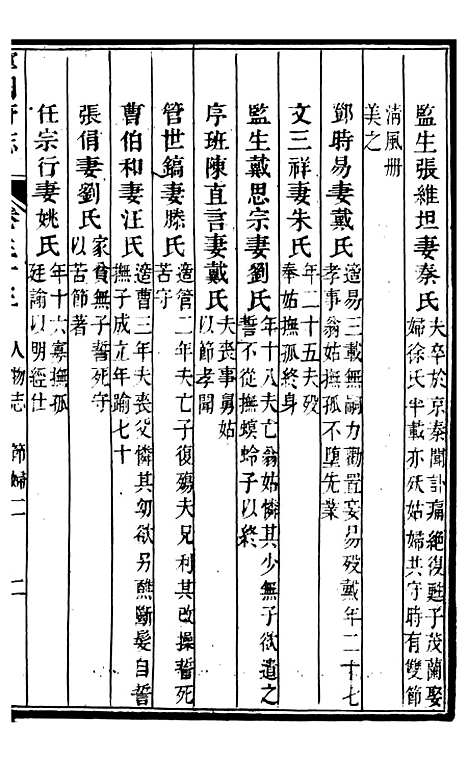 監生張維坦妻秦氏
夫卒於京秦聞訃痛絕復甦子茂蘭娶
婦徐氏半載亦殀姑婦共守時有雙節
清風冊
美之
鄧時易妻戴氏
適易三載無嗣力勸置妾易殁戴年二十七
孝事翁姑撫孤不墮先業
文三祥妻朱氏
年二十五夫殁
奉姑撫孤終身
監生戴思宗妻劉氏
年十八夫亡翁姑憐其少無子欲遣之
誓不從撫螟蛉子以終
序班陳直言妻戴氏
夫喪事舅姑
以節孝聞
管世鎬妻滕氏
適管二年夫亡子復殤夫兄利其改操誓死
苦守
曹伯和妻汪氏
適曹三年夫喪父憐其幼欲另醮斷髮自誓
撫子成立年踰七十
張倩妻劉氏
家貧無子誓死守
以苦節著
任宗行妻姚氏
年十六寡撫孤
廷諭以明經仕
府志
人物志
節婦二
二